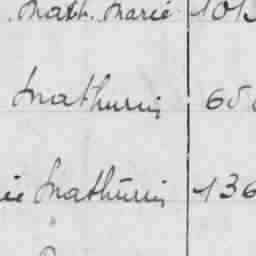 Math. Marie 1013
Mathurin 650
ie Mathurin 136